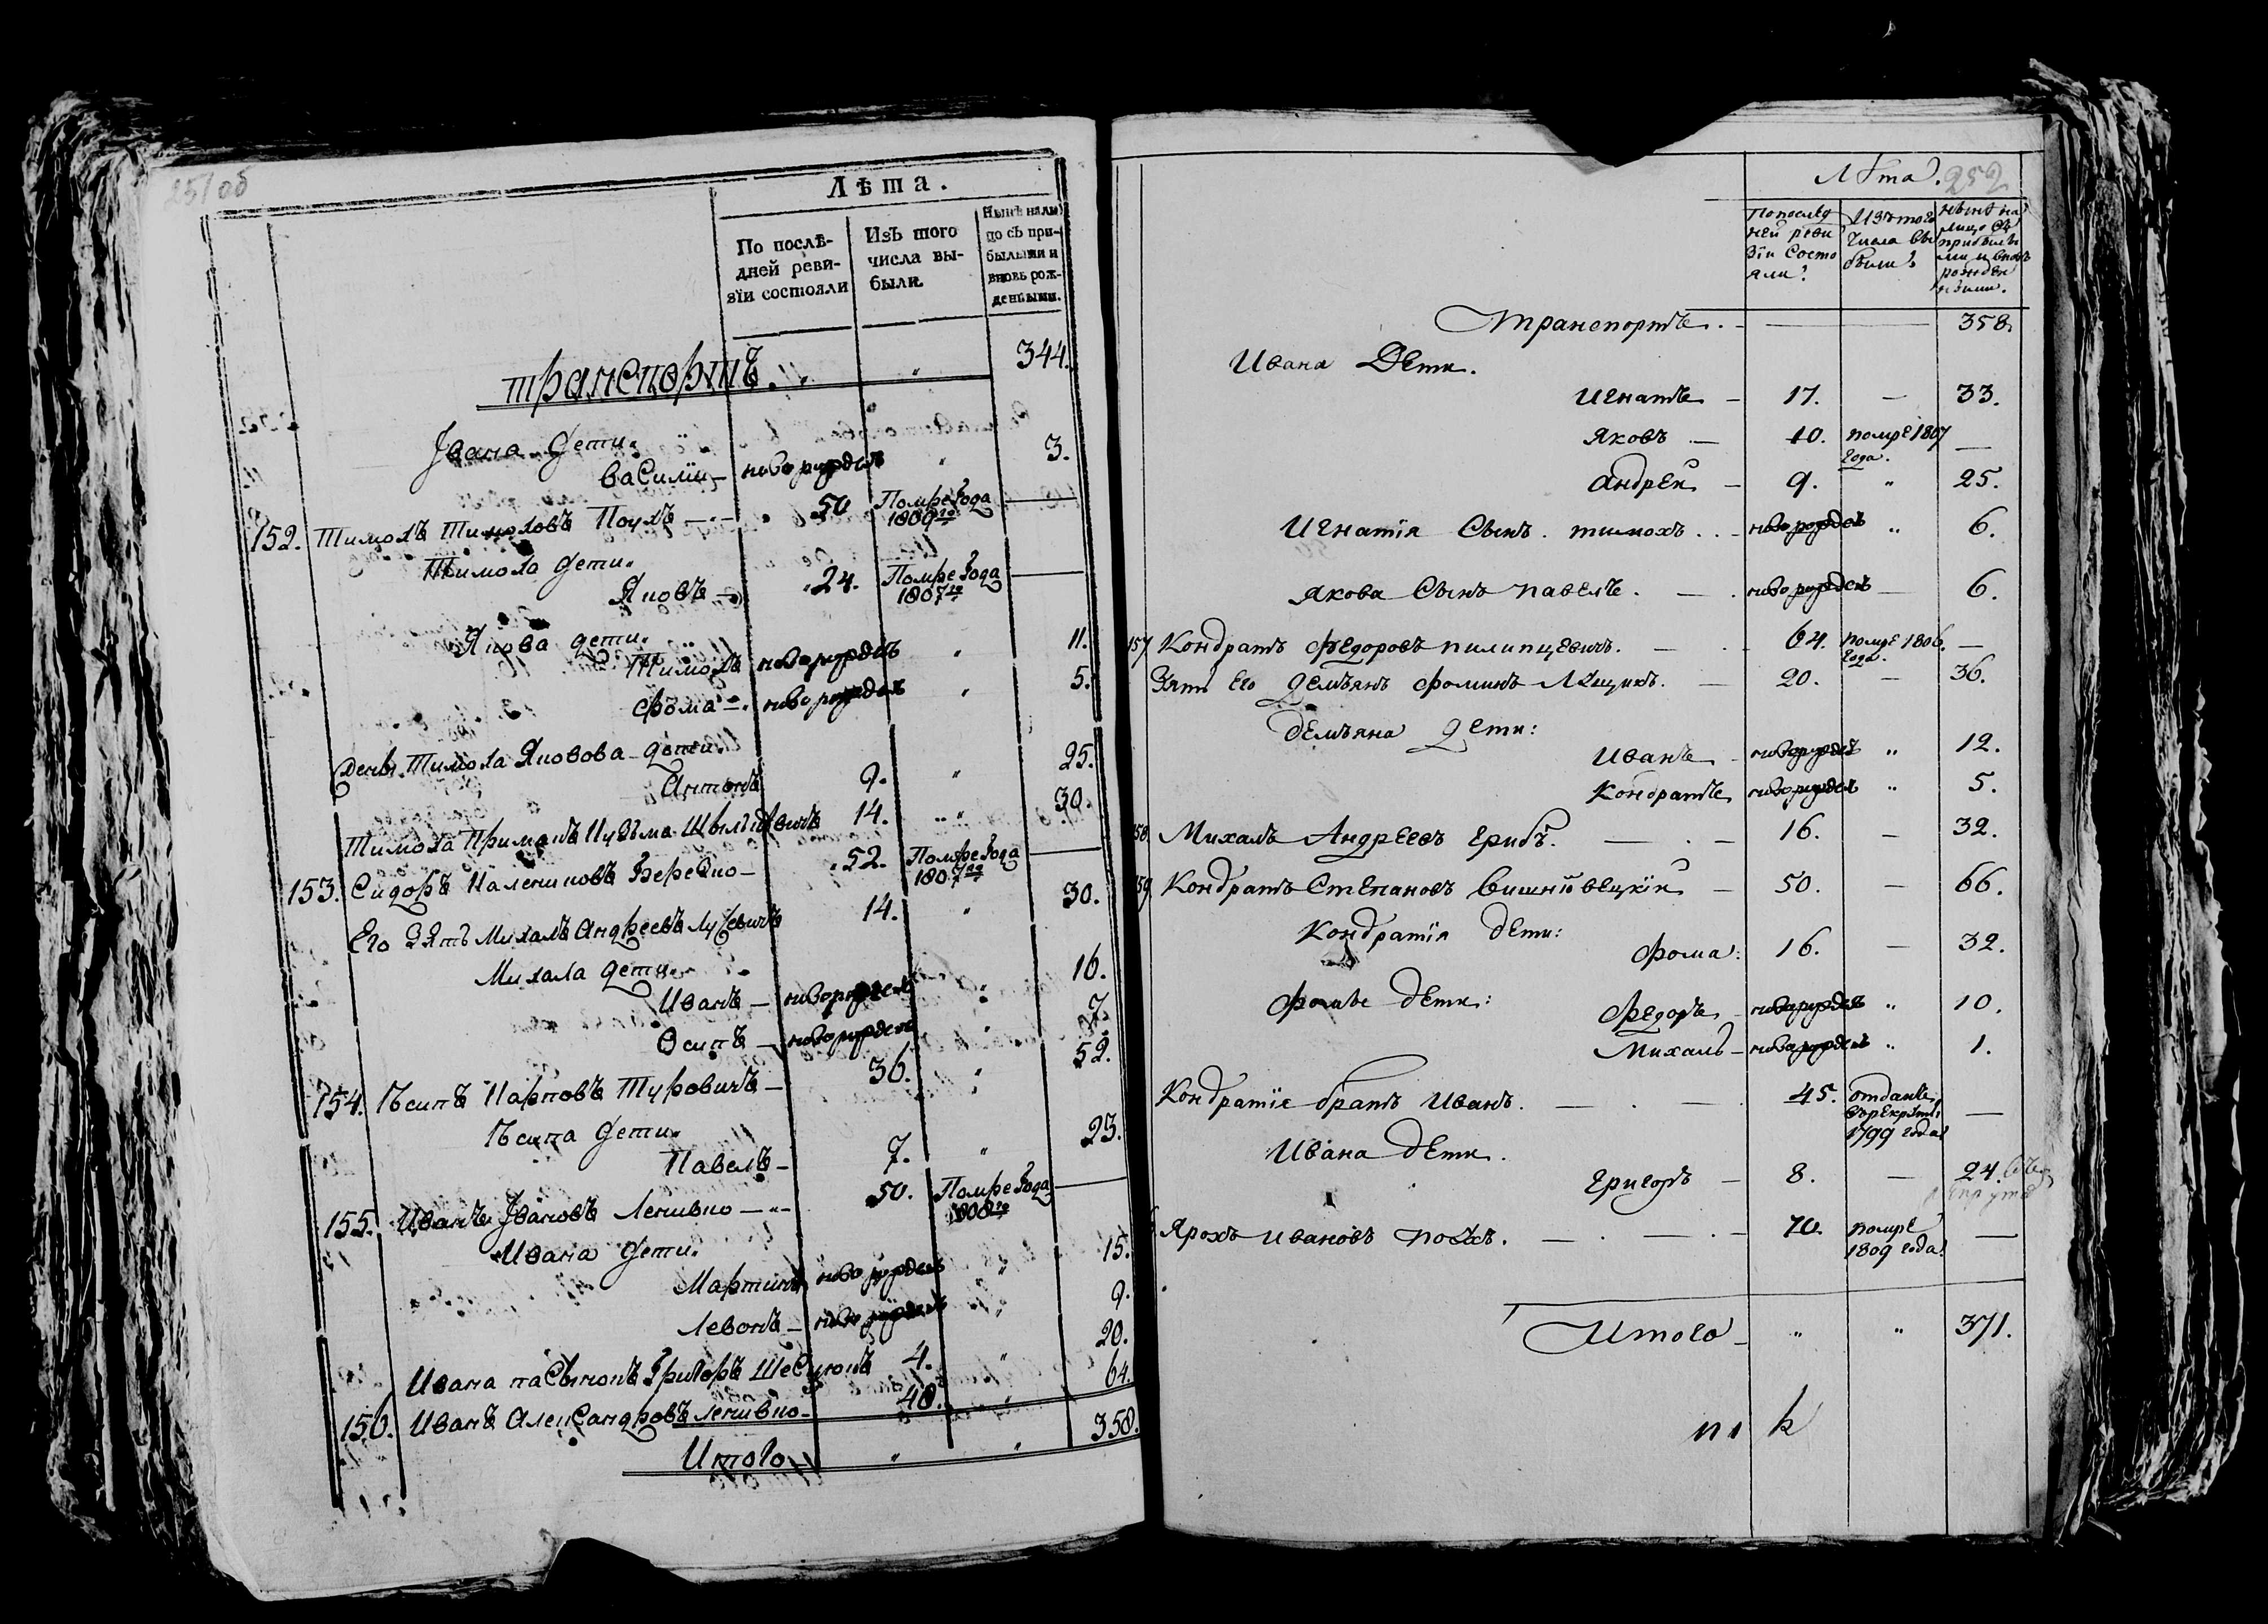 251 об
Лѣта.
По послѣдней ревизіи состояли
Изъ того числа выбыли.
Нынѣ налицо съ прибылыми и вновь рожденными.
транспортъ. „ „ 344.
Івана дети.
Василїи — новорожденъ „ 3.
152. Тимохъ Тимоховъ — 50 Помре Года 1809го —
Тимоха дети.
Яковъ — 24. Помре Года 1807го —
Якова дети.
Тимохъ новорожденъ „ 11.
Фома — новорожденъ „ 5.
Тимоха Яковова дети.
Антонъ 9. „ 25.
Тимоха Примакъ Кузьма 14. „ 30.
153. Сидоръ 52. Помре Года 1807го —
Его Зять Михалъ Андреевъ 14. „ 30.
Михала дети.
Иванъ — новорожденъ „ 16.
Осипъ — новорожденъ „ 7.
154. Іосипъ Карповъ Туровичъ — 36. „ 52.
Іосипа дети.
Павелъ — 7. „ 23.
155. Иванъ Івановъ Ленивко — 50. Помре Года 1808го —
Ивана дети.
Мартинъ новорожденъ „ 15.
Левонъ — новорожденъ „ 9.
Ивана пасынокъ Григоръ 4. „ 20.
156. Иванъ Александровъ Ленивко — 48. „ 64.
Итого „ „ 358.
Лѣта. 252
По последней ревизїи состояли
Изъ того числа выбыли
Нынѣ налицо съ прибылыми и вновь рожденными.
Транспортъ. — — 358.
Ивана Дети.
Игнатъ — 17. — 33.
Яковъ — 10. помрЕ 1807 года. —
АндрЕй — 9. „ 25.
Игнатїя Сынъ тимохъ. новорожденъ „ 6.
Якова Сынъ павелъ. новорожденъ — 6.
157 Кондратъ Федоровъ пилипцевичъ. — 64. помрЕ 1806. года. —
Зять Его Демъянъ Фоминъ — 20. — 36.
Демъяна Дети:
Иванъ новорожденъ „ 12.
Кондратъ новорожденъ „ 5.
158 Михалъ Андреевъ грибъ. — 16. — 32.
159. Кондратъ Степановъ вишнївецкїй — 50. — 66.
Кондратїя дети:
Фома: 16. — 32.
Фомы дети:
Федоръ новорожденъ „ 10.
Михалъ — новорожденъ „ 1.
Кондратїя братъ Иванъ. — 45. отданъ въ рекруты 1799 года —
Ивана дети.
Григоръ — 8. — 24.
Ярохъ Ивановъ — 70. помре 1809 года —
Итого — „ „ 371.